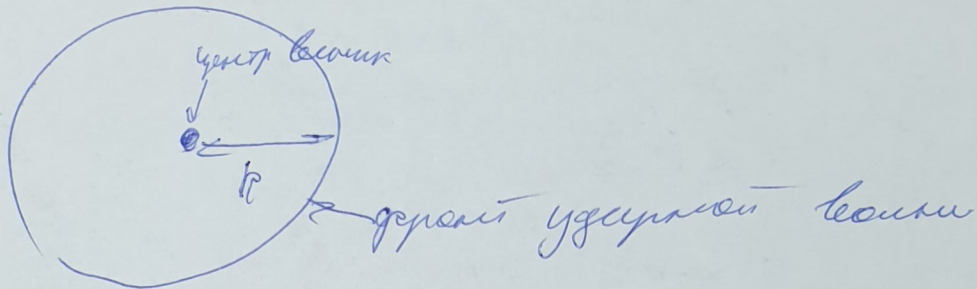 центр вспышки
R
фронт ударной волны